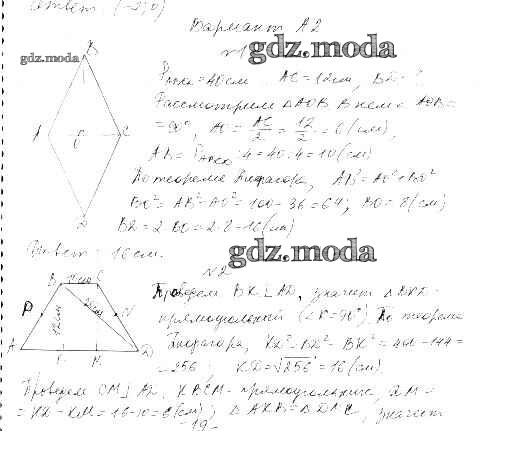 Ответ: (-3;0)
Вариант А2
№1
gdz.moda
gdz.moda
P_ABCD = 40 см AC = 12 см, BD - ?
Рассмотрим △AOB. В нем ∠AOB =
= 90°, AO = AC/2 = 12/2 = 6 (см),
AB = P_ABCD : 4 = 40 : 4 = 10 (см)
По теореме Пифагора, AB² = AO² + BO²
BO² = AB² - AO² = 100 - 36 = 64; BO = 8 (см)
BD = 2 BO = 2·8 = 16 (см)
Ответ: 16 см.
gdz.moda
№2
Проведем BK ⊥ AD, значит △BKD -
прямоугольный (∠K = 90°). По теореме
Пифагора, KD² = BD² - BK² = 400 - 144 =
= 256; KD = √256 = 16 (см).
Проведем CM ⊥ AD, KBCM - прямоугольник, DM =
= KD - KM = 16 - 10 = 6 (см); △AKB = △DMC, значит
-19-
B
A
O
C
D
B
10см
C
P
12см
N
A
K
M
D